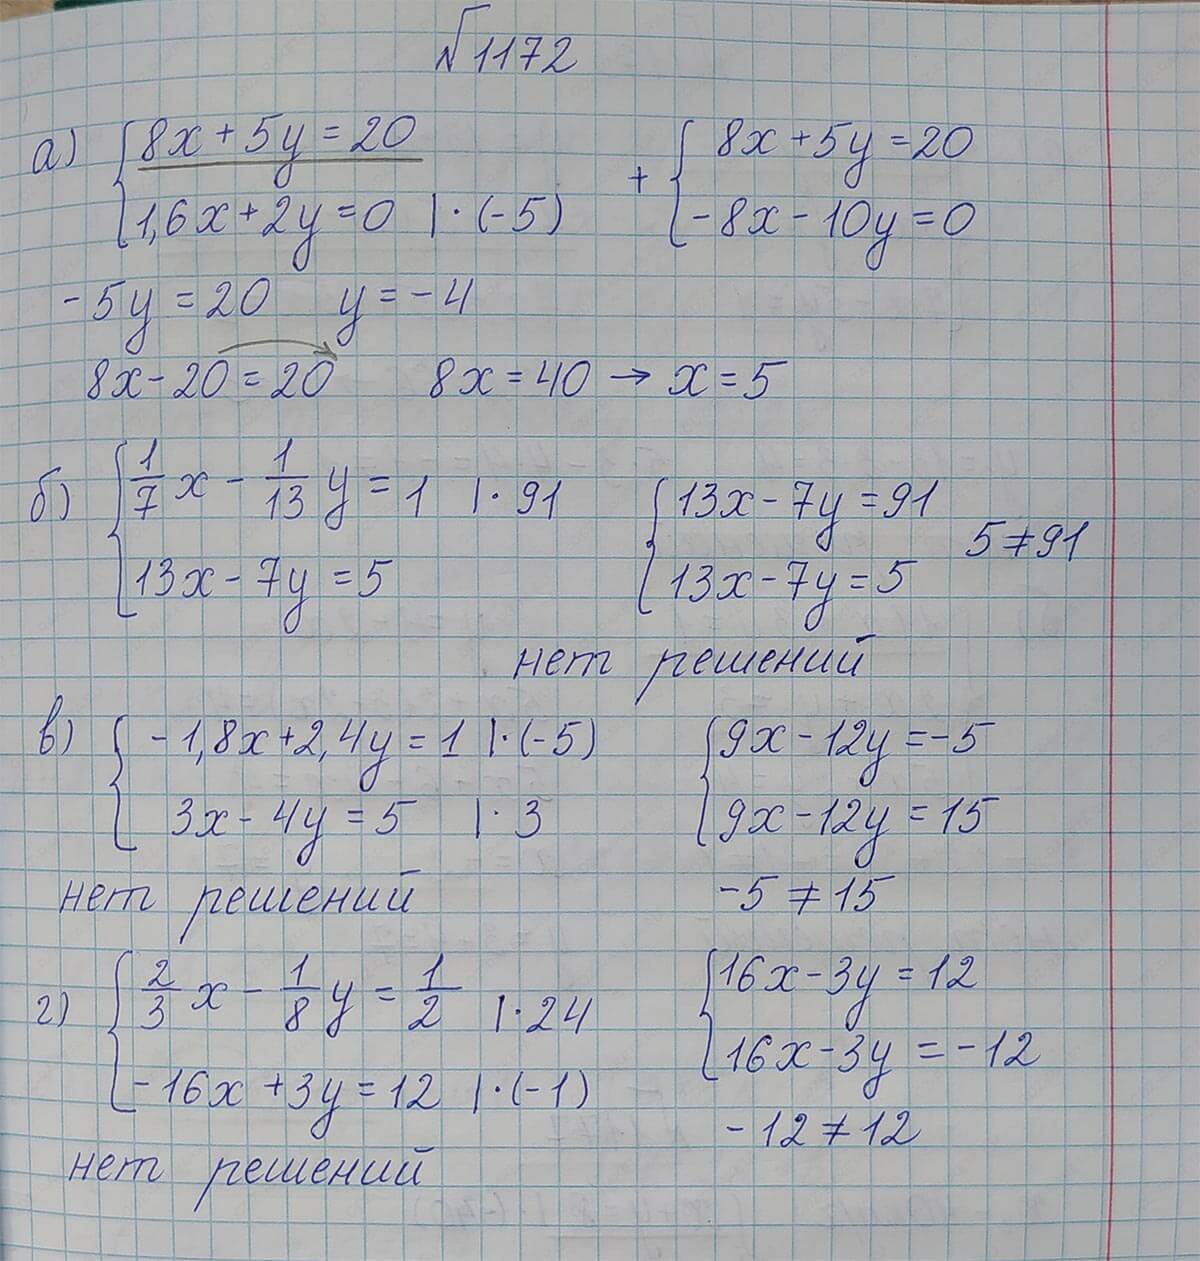 №1172
а) {8x+5y=20 + {8x+5y=20
{1,6x+2y=0 |·(-5) {-8x-10y=0
-5y=20 y=-4
8x-20=20 8x=40 → x=5
б) {1/7 x - 1/13 y = 1 |·91 {13x-7y=91
{13x-7y=5 {13x-7y=5 5≠91
нет решений
в) {-1,8x+2,4y=1 |·(-5) {9x-12y=-5
{3x-4y=5 |·3 {9x-12y=15
нет решений -5≠15
г) {2/3 x - 1/8 y = 1/2 |·24 {16x-3y=12
{-16x+3y=12 |·(-1) {16x-3y=-12
-12≠12
нет решений